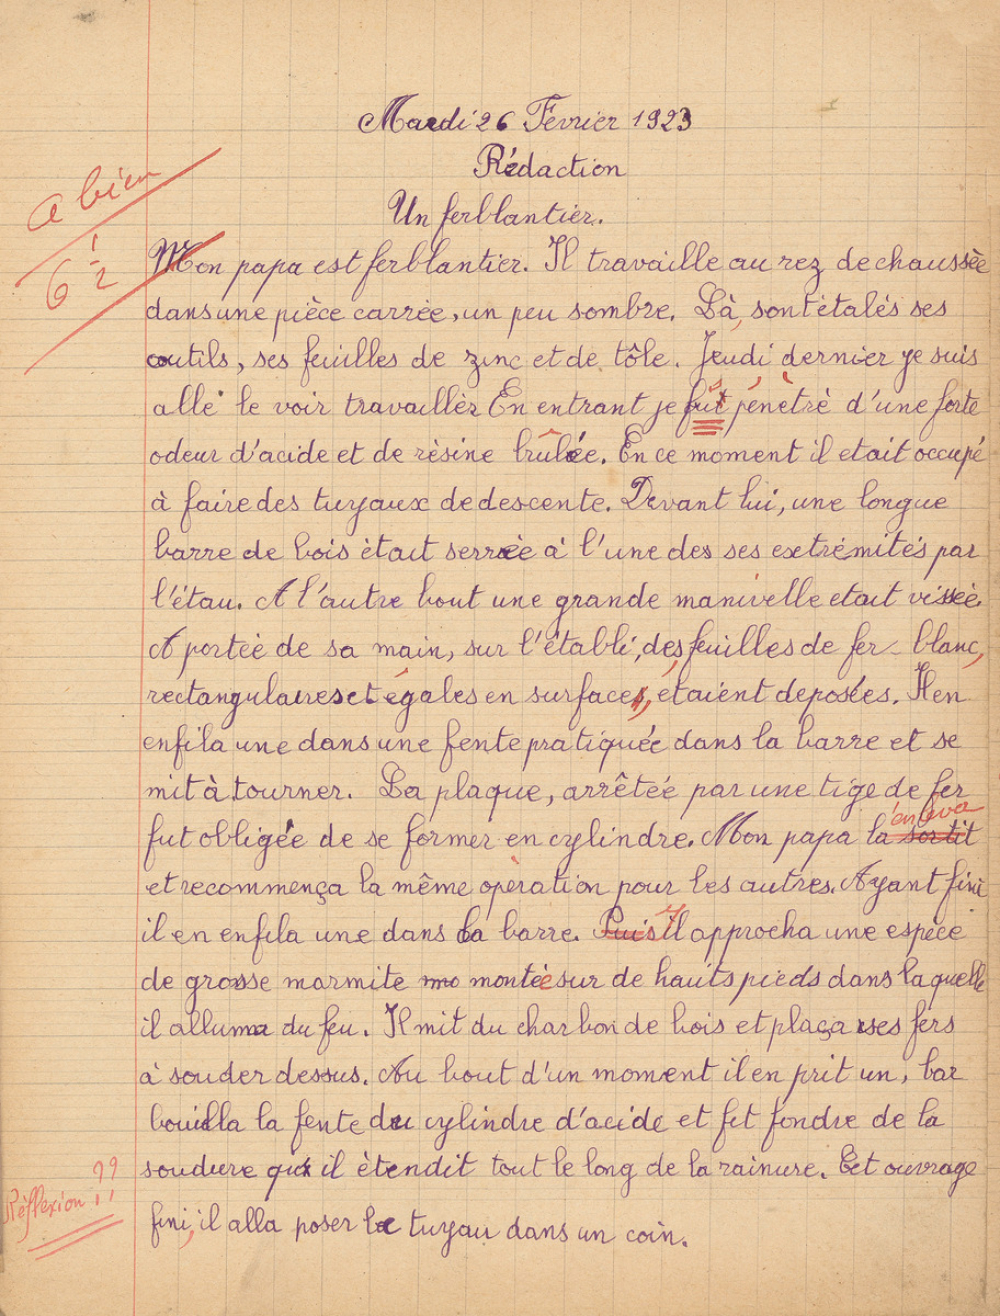 Mardi 26 Février 1923
Rédaction
Un ferblantier.
a bien
6 1/2
Mon papa est ferblantier. Il travaille au rez de chaussée
dans une pièce carrée, un peu sombre. Là, sont étalés ses
outils, ses feuilles de zinc et de tôle. Jeudi dernier je suis
allé le voir travailler. En entrant je fut pénètré d'une forte
odeur d'acide et de résine brûlée. En ce moment il etait occupé
à faire des tuyaux de descente. Devant lui, une longue
barre de bois était serrée à l'une des ses extrémités par
l'étau. A l'autre bout une grande manivelle etait vissée.
A portée de sa main, sur l'établi, des feuilles de fer-blanc,
rectangulaires et égales en surface, étaient deposées. Il en
enfila une dans une fente pratiquée dans la barre et se
mit à tourner. La plaque, arrêtée par une tige de fer
fut obligée de se former en cylindre. Mon papa la sortit
enleva
et recommença la même opération pour les autres. Ayant fini
il en enfila une dans la barre. Puis Il approcha une espèce
de grosse marmite mo montée sur de hauts pieds dans laquelle
il alluma du feu. Il mit du charbon de bois et plaça ses fers
à souder dessus. Au bout d'un moment il en prit un, bar
bouilla la fente du cylindre d'acide et fit fondre de la
soudure qu'il étendit tout le long de la rainure. Cet ouvrage
fini, il alla poser le tuyau dans un coin.
Réflexion ?? !!